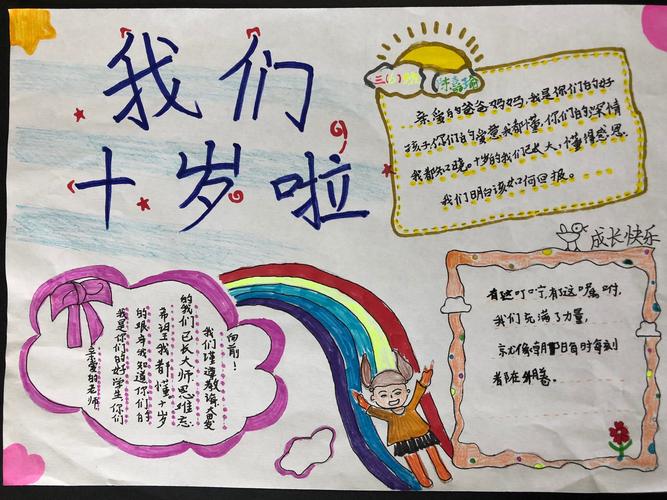 我们
十岁啦
三()班
亲爱的爸爸妈妈,我是你们的好
孩子,你们的爱意我都懂,你们的深情
我都知晓。十岁的我们已长大,懂得感恩
我们明白该如何回报。
成长快乐
亲爱的老师,
我是你们的好学生你们
的艰辛我知道你们的
希望我都懂。十岁
的我们已长大师恩难忘
我们谨遵教诲大爱
向前!
有这叮咛,有这嘱咐,
我们充满了力量,
就像每日每时每刻
都在